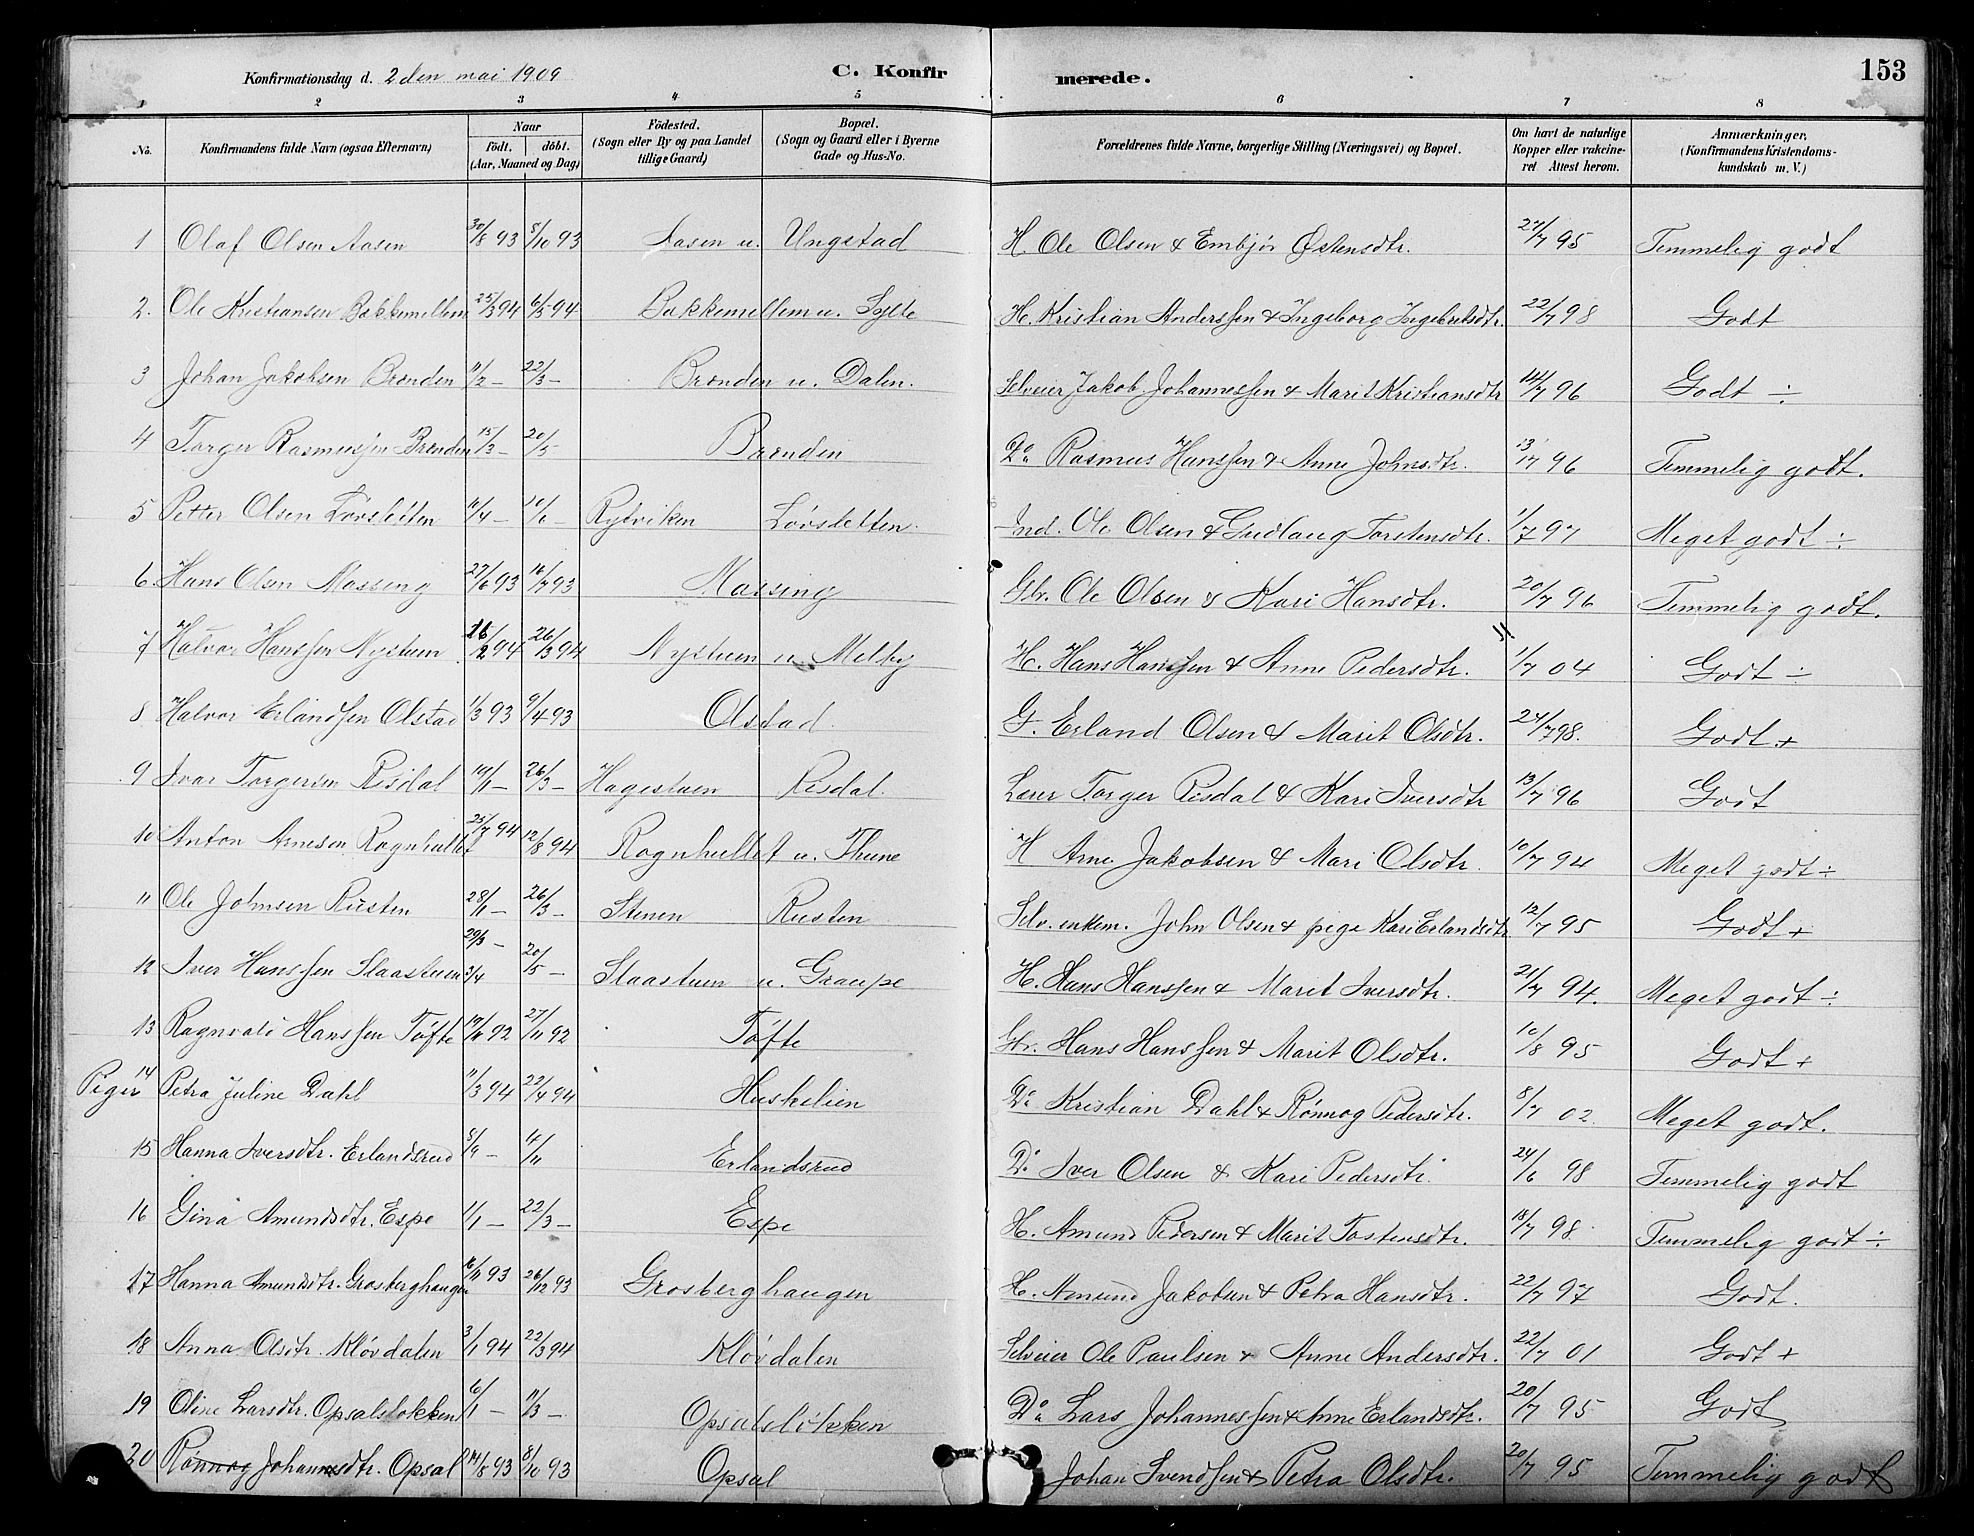 Konfirmationsdag d. 2den mai 1909 C. Konfirmerede. 153
1 2 3 4 5 6 7 8
No. Konfirmandens fulde Navn (ogsaa Efternavn) Naar födt. döbt. (Aar, Maaned og Dag) Födested. (Sogn eller By og paa Landet tillige Gaard) Bopæl. (Sogn og Gaard eller i Byerne Gade og Hus-No. Forældrenes fulde Navne, borgerlige Stilling (Næringsvei) og Bopæl. Om havt de naturlige Kopper eller vakcineret Attest herom. Anmærkninger, (Konfirmandens Kristendomskundskab m. V.)
1 Olaf Olsen Aasen 30/8 93 8/10 93 Aasen u. Ungstad H. Ole Olsen & Embjør Østensdtr. 27/7 95 Temmelig godt
2. Ole Kristiansen Bakkemellem 25/3 94 6/5 94 Bakkemellem u. Sylte H. Kristian Anderssen & Ingeborg Ingebretsdtr. 22/7 98 Godt
3 Johan Jakobsen Brænden 11/2 – 22/3 – Brænden u. Dalen. Selveier Jakob Johannessen & Marit Kristiansdtr 14/7 96 Godt ÷
4 Torger Rasmussen Brænden 15/3 – 20/5 – Brænden Do Rasmus Hanssen & Anne Johnsdtr. 13/7 96 Temmelig godt.
5 Petter Olsen Løvsletten 11/4 – 10/6 – Rydviken Løvsletten. Ind. Ole Olsen & Gudlaug Torstensdtr. 1/7 97 Meget godt ÷
6 Hans Olsen Massing 27/6 93 16/7 93 Massing Gbr. Ole Olsen & Kari Hansdtr. 20/7 96 Temmelig godt.
7 Halvor Hanssen Nystuen 26/2 94 26/3 94 Nystuen u. Melby H. Hans Hanssen & Anne Pedersdtr. 1/7 04 Godt ÷
8 Halvor Erlandsen Olstad 1/3 93 9/4 93 Olstad G. Erland Olsen & Marit Olsdtr. 24/7 98. Godt +
9 Ivar Torgersen Risdal 19/1 – 26/3 – Hagestuen Risdal. Lærer Torger Risdal & Kari Iversdtr 13/7 96 Godt
10 Anton Arnesen Ragnhullet 25/7 94 12/8 94 Ragnhullet u. Thune H Arne Jakobsen & Mari Olsdtr. 10/7 94 Meget godt ÷
11 Ole Johnsen Rusten 28/1 – 26/3 – Stenen Rusten Selv. enkem. John Olsen & pige Kari Erlandsdtr 12/7 95 Godt +
12 Iver Hanssen Slaastuen 29/3 – 3/4 20/5 – Slaastuen u. Graupe H. Hans Hanssen & Marit Iversdtr. 21/7 94. Meget godt ÷
13 Ragnvald Hanssen Tøfte 92 27/11 92 Tøfte Gbr. Hans Hanssen & Marit Olsdtr. 10/8 95 Godt +
Piger 14 Petra Juline Dahl 11/3 94 22/4 94 Huskelien Do Kristian Dahl & Rønnog Pedersdtr. 8/7 02. Meget godt.
15 Hanna Iversdtr. Erlandsrud 8/9 – 4/11 Erlandsrud Do Iver Olsen & Kari Pedersdtr. 24/6 98 Temmelig godt
16 Gina Amundsdtr. Espe 1/1 – 22/3 – Espe H. Amund Pedersen & Marit Tostensdtr. 18/7 98. Temmelig godt ÷
17 Hanna Amundsdtr. Grosberghaugen 16/11 93 26/12 93 Grosberghaugen H. Amund Jakobsen & Petra Hansdtr. 22/7 97 Godt.
18 Anna Olsdtr. Kløvdalen 3/1 94 22/3 94 Kløvdalen Selveier Ole Paulsen & Anne Andersdtr. 22/7 01 Godt +
19 Oline Larsdtr. Opsalsløkken 6/1 – 11/3 – Opsalsløkken Do Lars Johannessen & Anne Erlandsdtr. 20/7 95 Godt
20 Rønnog Johannesdtr. Opsal 14/8 93 8/10 93 Opsal Johan Svendsen & Petra Olsdtr. 20/7 95 Temmelig godt